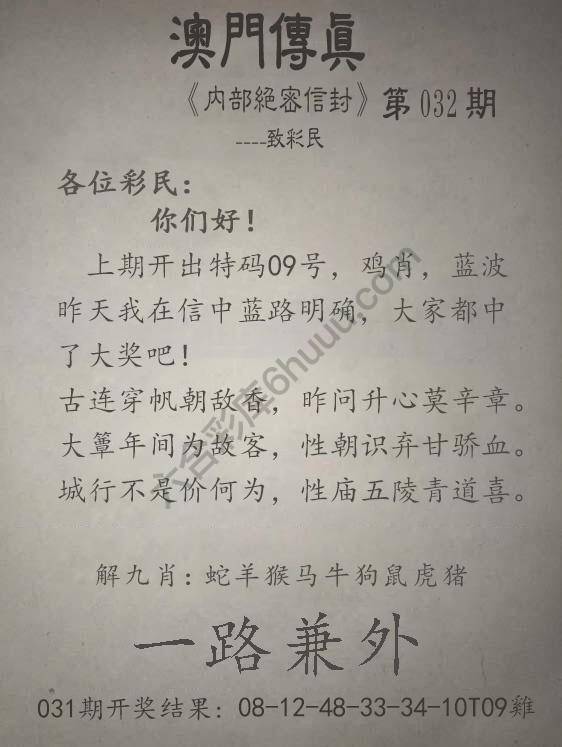 澳門傳眞
《内部絕密信封》第032期
----致彩民
各位彩民：
你们好！
上期开出特码09号，鸡肖，蓝波
昨天我在信中蓝路明确，大家都中
了大奖吧！
古连穿帆朝敌香，昨问升心莫辛章。
大簟年间为故客，性朝识弃甘骄血。
城行不是价何为，性庙五陵青道喜。
解九肖：蛇羊猴马牛狗鼠虎猪
一路兼外
031期开奖结果：08-12-48-33-34-10T09雞
六合彩库6huuu.com